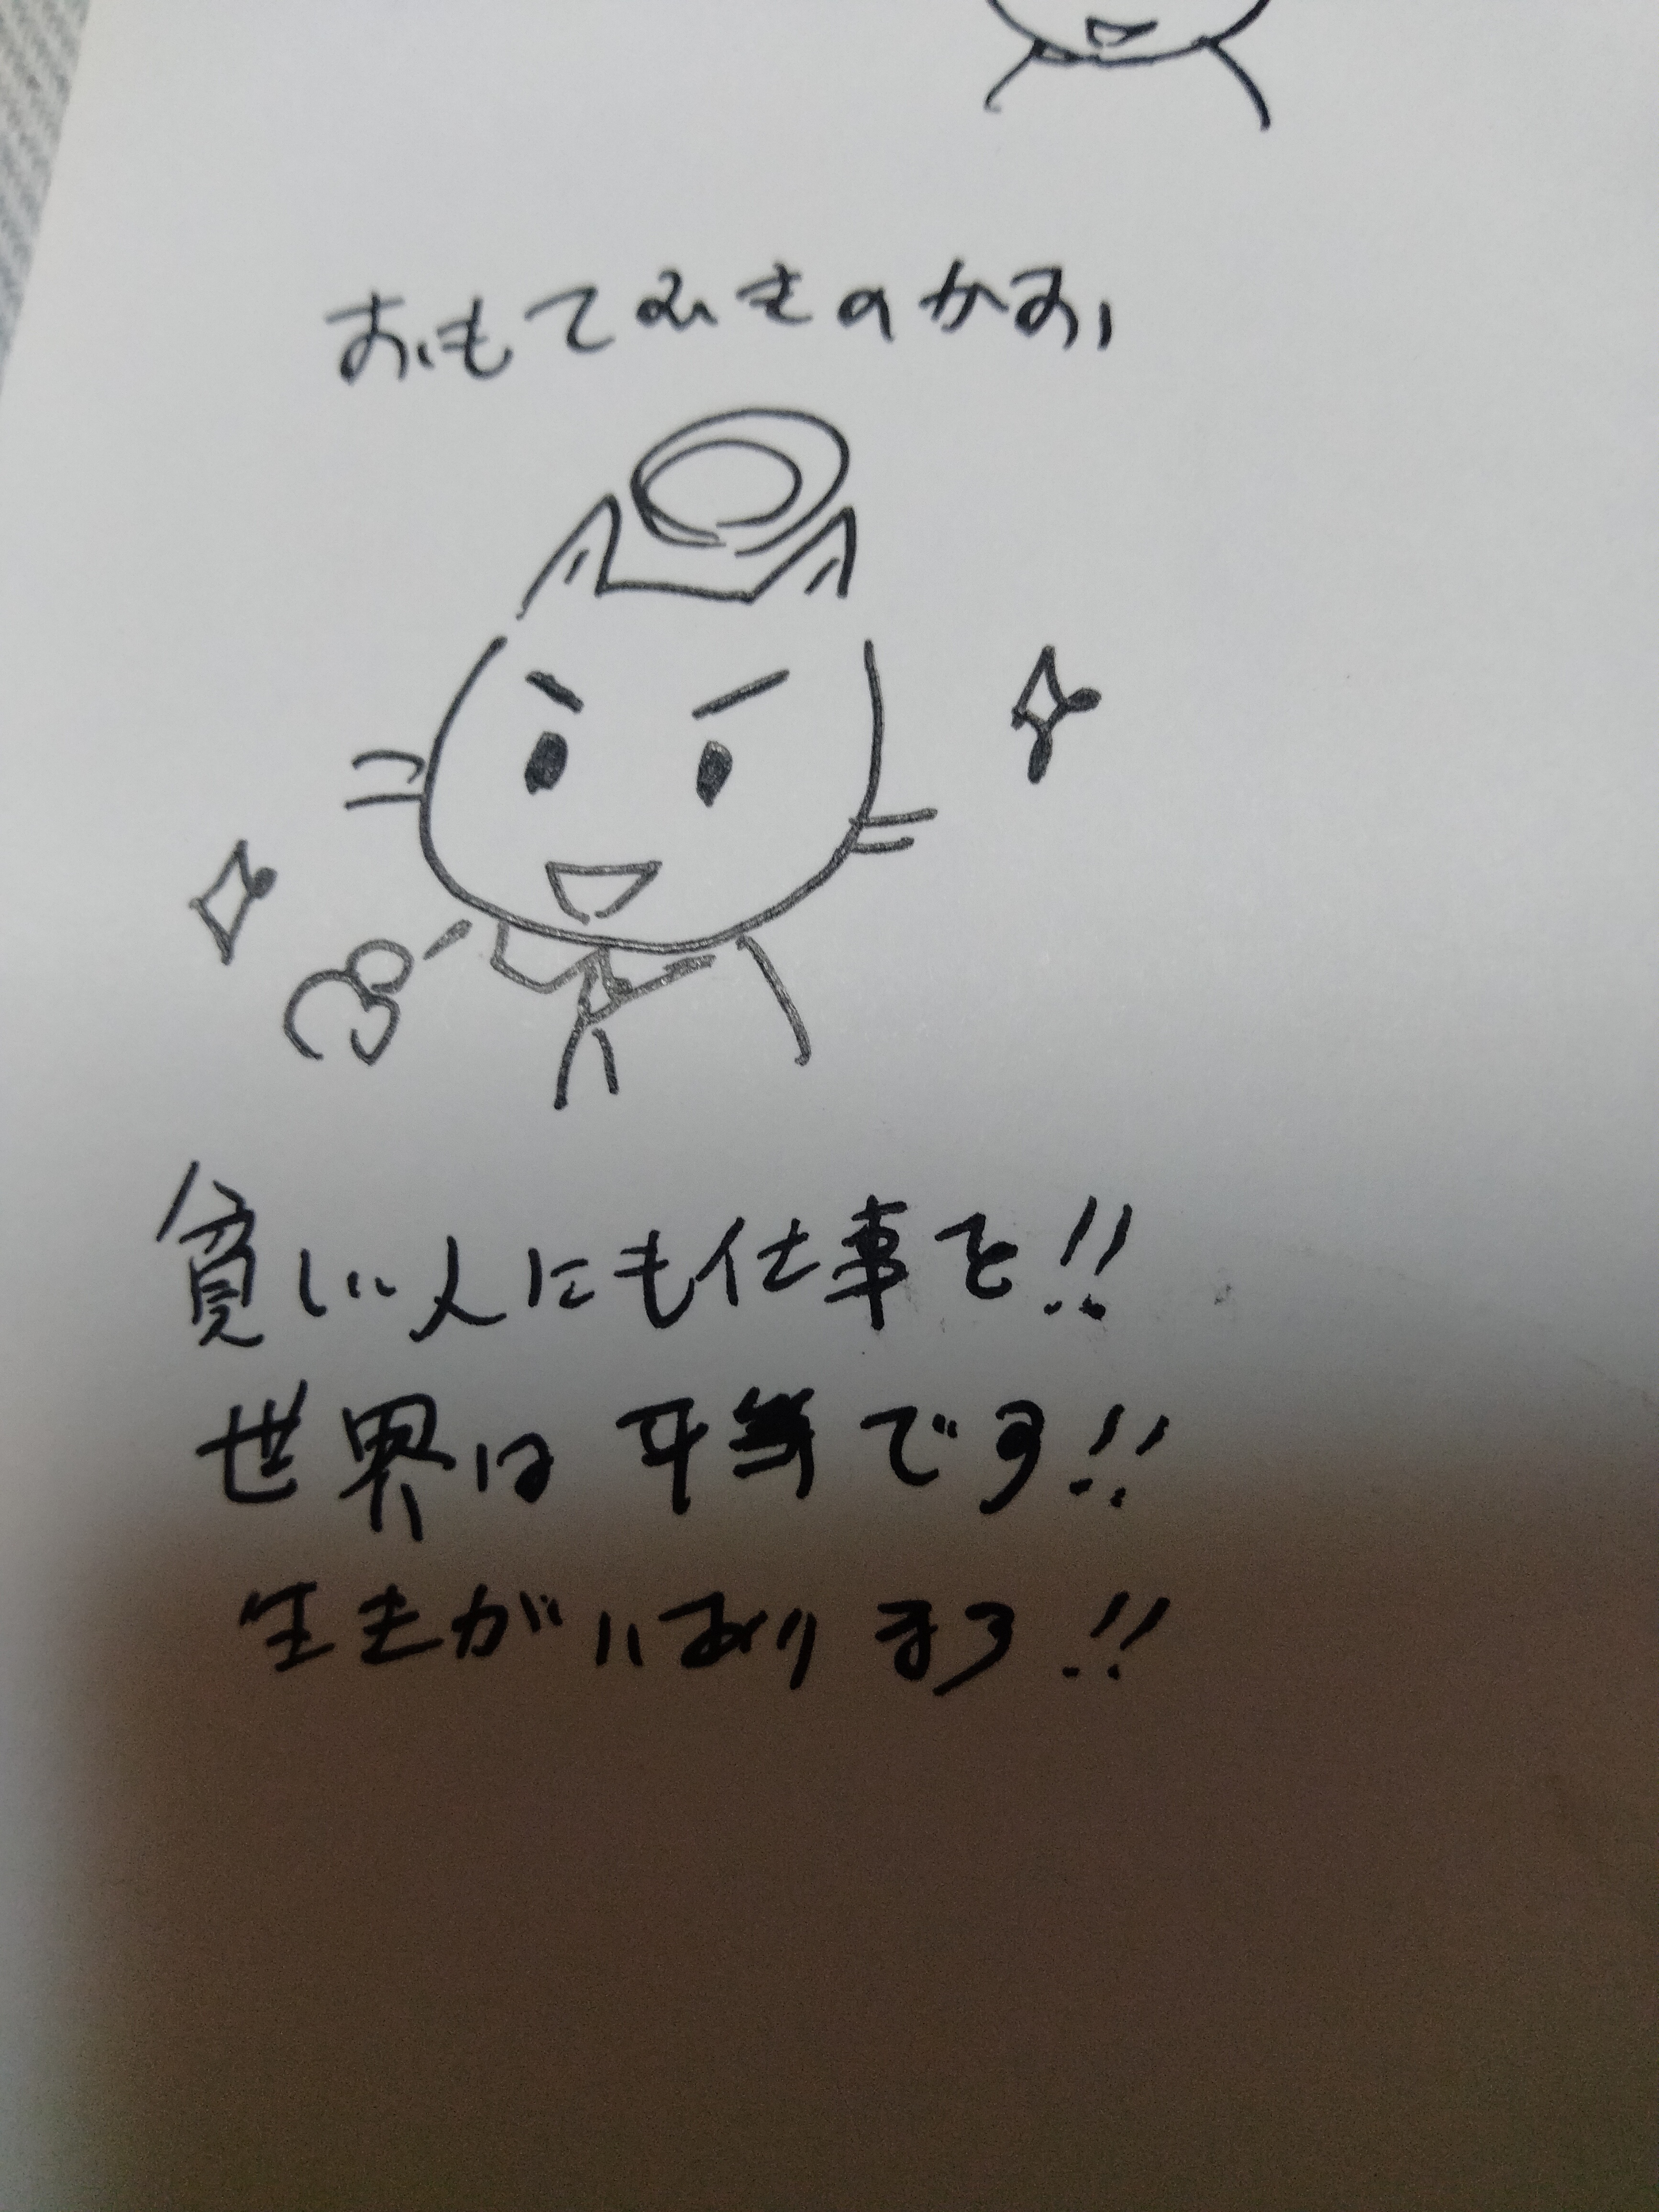 おもてむきのかお
貧しい人にも仕事を!!
世界は平等です!!
生きがいあります!!